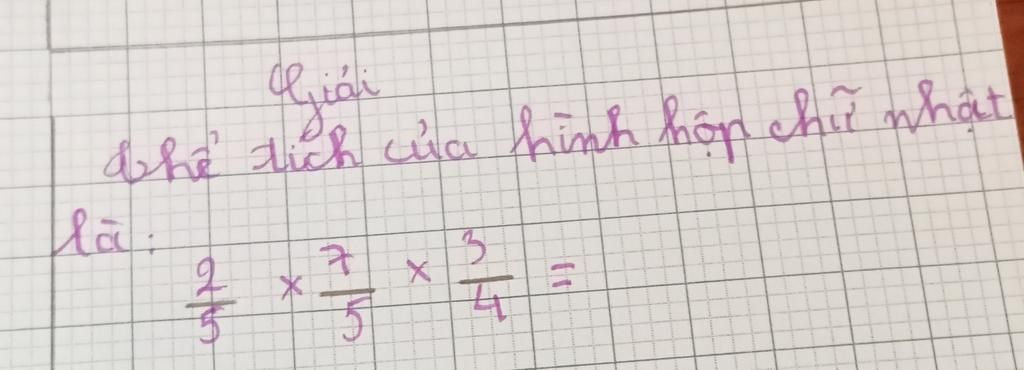 Giải
Thể tích của hình hộp chữ nhật
là:
2/5 × 7/5 × 3/4 =